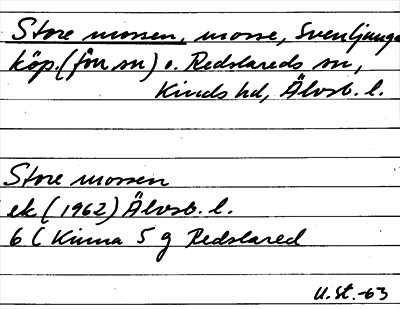 Store mossen, mosse, Svenljunga
köp. (fnn sn) o. Redslareds sn,
Kinds hd, Älvsb. l.
Store mossen
ek (1962) Älvsb. l.
6 C Kinna 5 g Redslared
U.St.-63